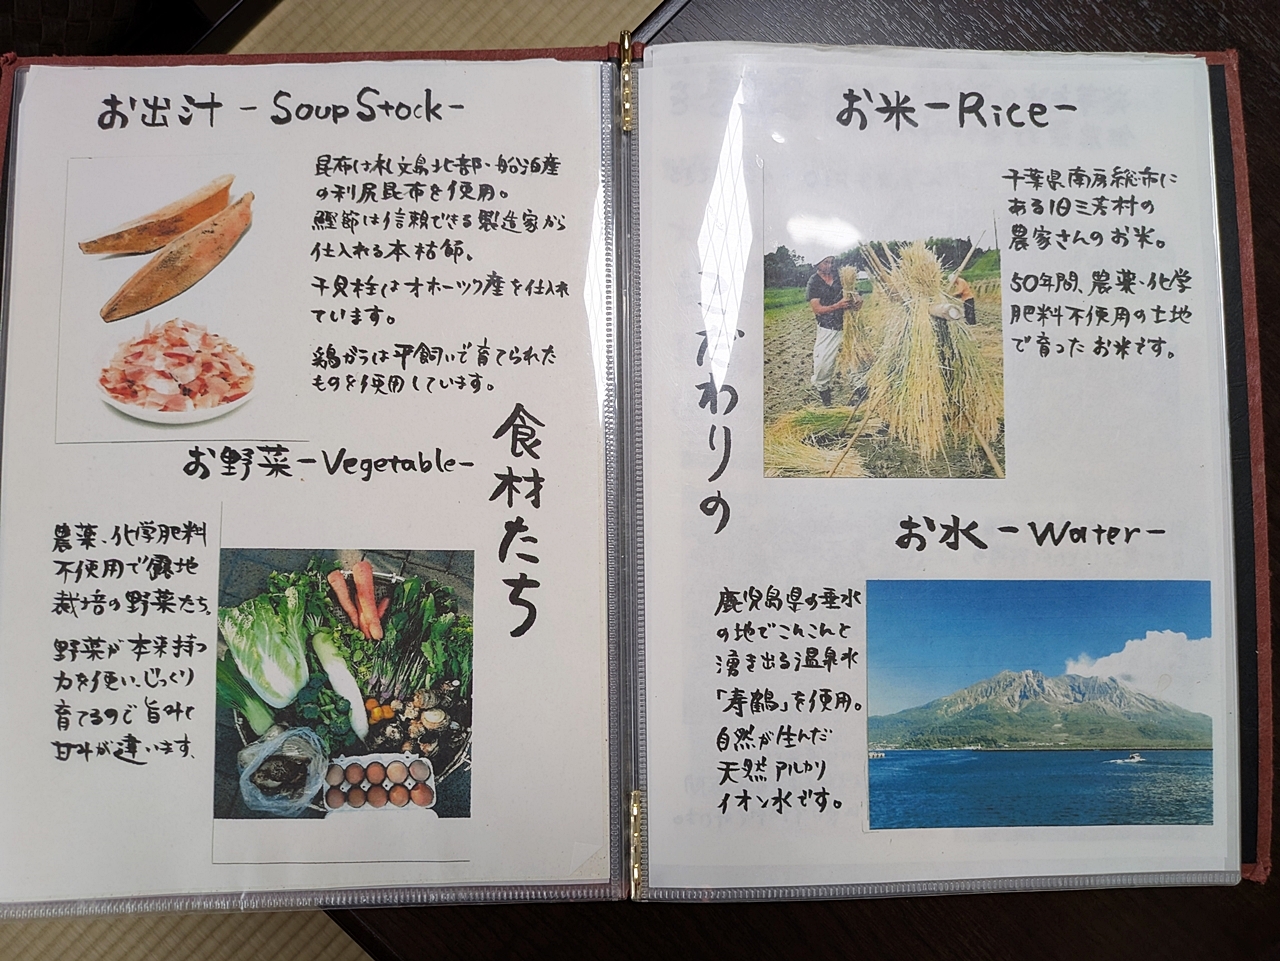 お出汁 -Soup Stock-
昆布は礼文島北部・船泊産
の利尻昆布を使用。
鰹節は信頼できる製造家から
仕入れる本枯節。
干貝柱はオホーツク産を仕入れ
ています。
鶏がらは平飼いで育てられた
ものを使用しています。
お野菜 -Vegetable-
農薬、化学肥料
不使用で露地
栽培の野菜たち。
野菜が本来持つ
力を使い、じっくり
育てるので旨みと
甘みが違います。
こだわりの
食材たち
お米 -Rice-
千葉県南房総市に
ある旧三芳村の
農家さんのお米。
50年間、農薬・化学
肥料不使用の土地
で育ったお米です。
お水 -Water-
鹿児島県の垂水
の地でこんこんと
湧き出る温泉水
「寿鶴」を使用。
自然が生んだ
天然アルカリ
イオン水です。